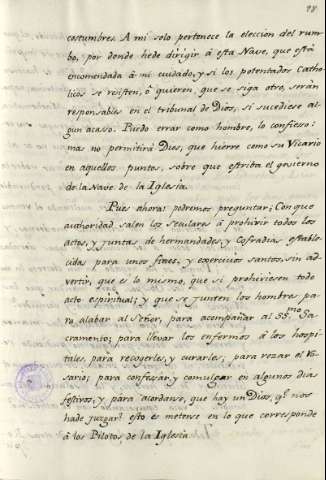 98
costumbres. A mi solo pertenece la eleccion del rum-
bo, por donde hede dirigir â esta Nave, que está
encomendada â mi cuidado, y si los potentados Catho-
licos se resisten, ô quieren, que se siga otro, serán
responsables en el tribunal de Dios, si sucediese al-
gun acaso. Puedo errar como hombre, lo confieso:
mas no permitirá Dios, que hierre como su Vicario
en aquellos puntos, sobre que estriba el govierno
de la Nave de la Iglesia.
Pues ahora: podremos preguntar; Con que
authoridad salen los Seculares â prohivir todos los
actos, y juntas de hermandades, y Cofradias estable-
cidas para unos fines, y exercicios santos, sin ad-
vertir, que es lo mismo, que si prohiviesen todo
acto espiritual; y que se junten los hombres pa-
ra alabar al Señor, para acompañar al SS.mo Sa-
cramento; para llevar los enfermos â los hospi-
tales, para recogerles, y curarles; para rezar el Ro-
sario; para confesar, y comulgar en algunos dias
festivos, y para acordarse, que hay un Dios, q.e nos
hade juzgar? esto es meterse en lo que corresponde
â los Pilotos, de la Iglesia.